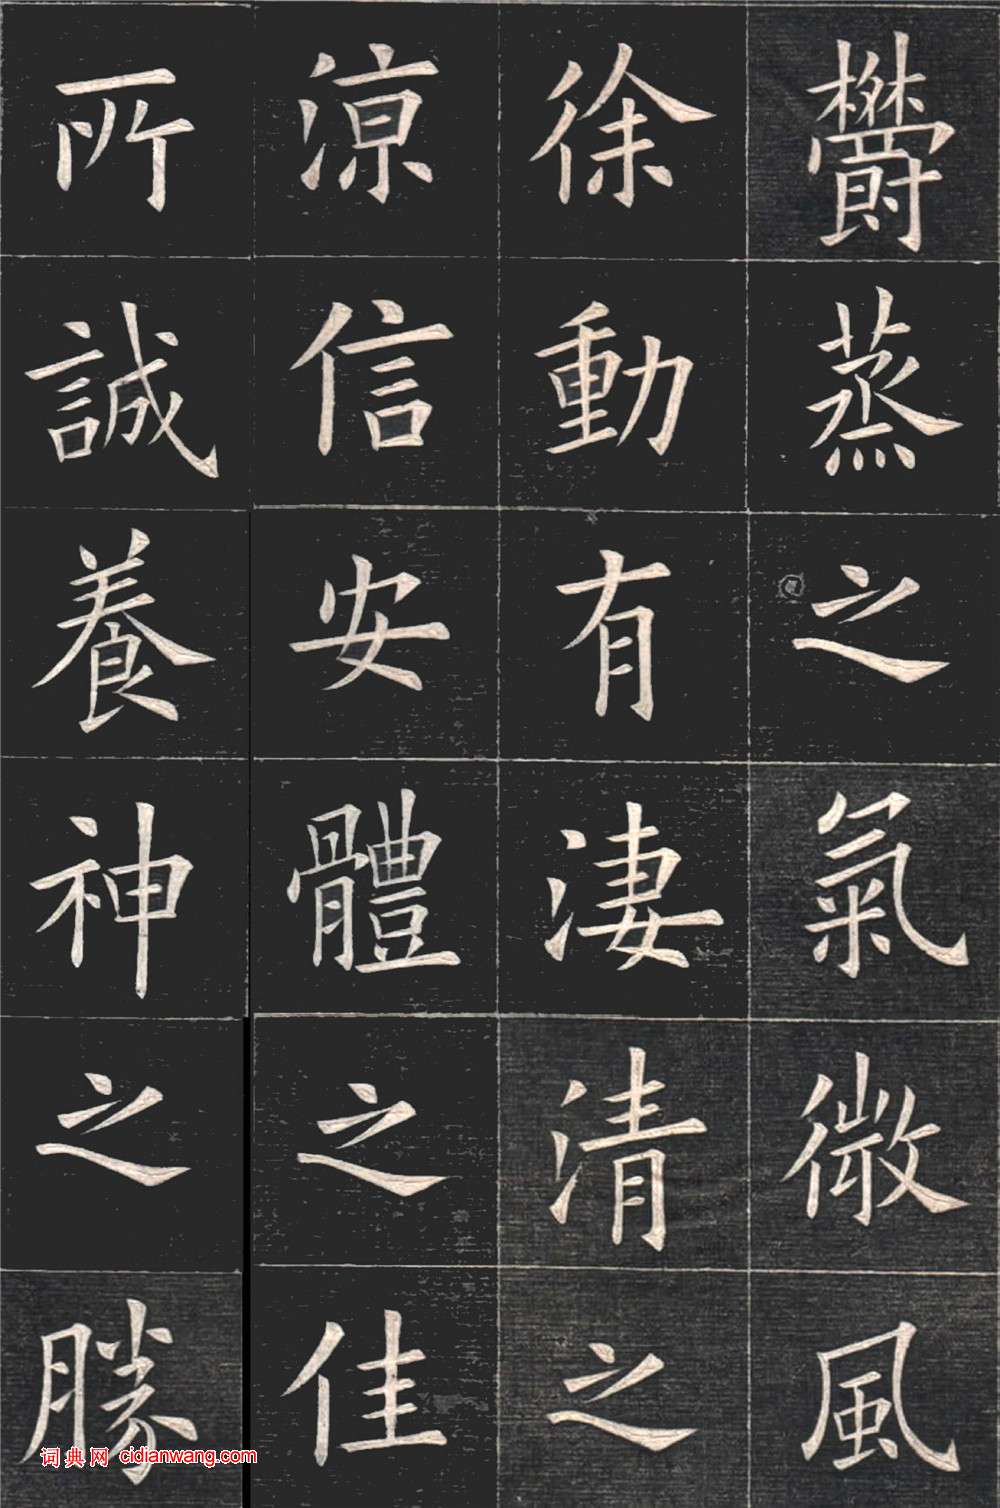 欝蒸之氣微風
徐動有淒清之
涼信安體之佳
所誠養神之勝
词典网 cidianwang.com